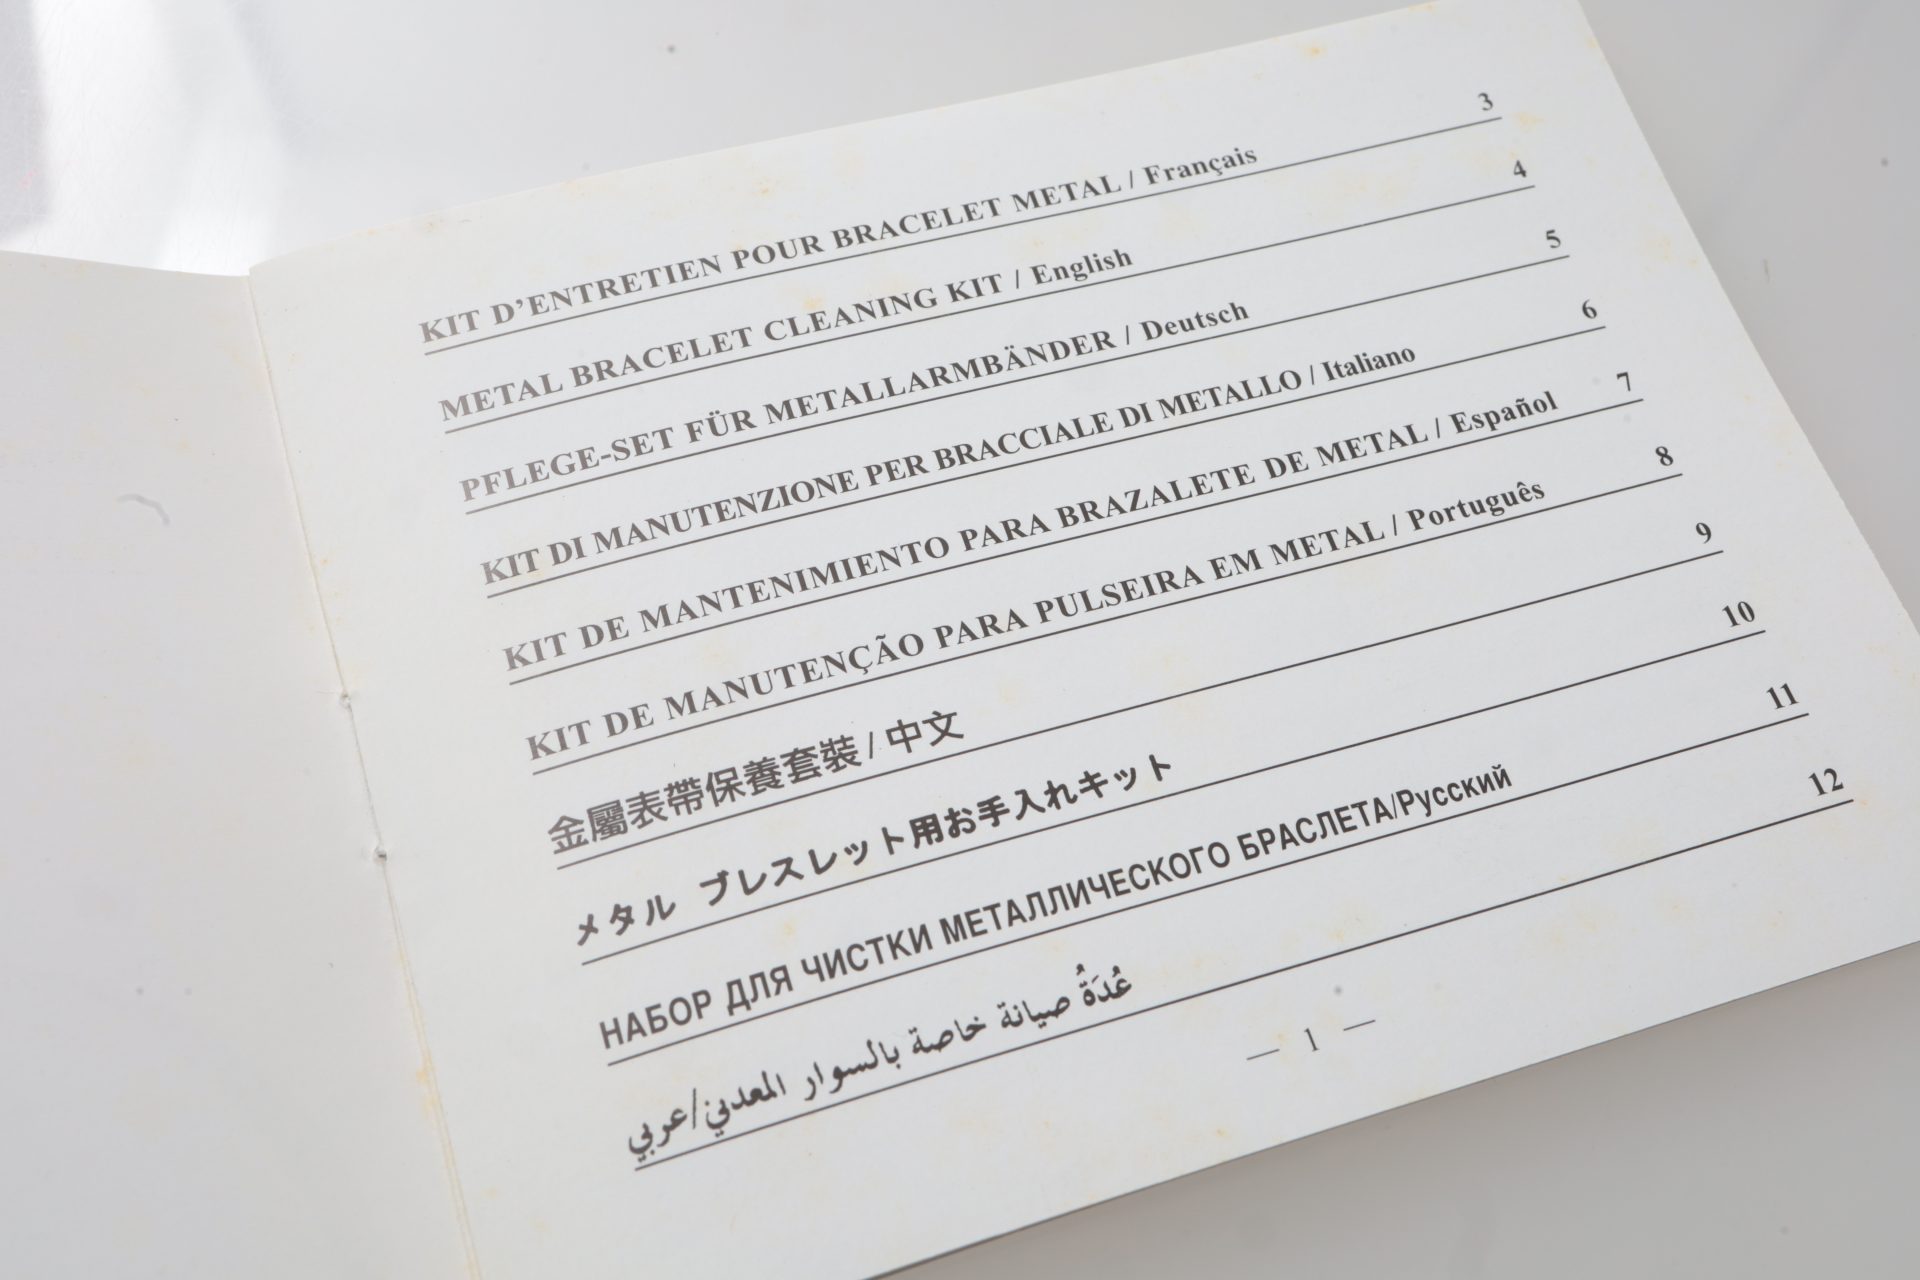 KIT D’ENTRETIEN POUR BRACELET METAL / Français 3
METAL BRACELET CLEANING KIT / English 4
PFLEGE-SET FÜR METALLARMBÄNDER / Deutsch 5
KIT DI MANUTENZIONE PER BRACCIALE DI METALLO / Italiano 6
KIT DE MANTENIMIENTO PARA BRAZALETE DE METAL / Español 7
KIT DE MANUTENÇÃO PARA PULSEIRA EM METAL / Português 8
金屬表帶保養套裝 / 中文 9
メタル ブレスレット用お手入れキット 10
НАБОР ДЛЯ ЧИСТКИ МЕТАЛЛИЧЕСКОГО БРАСЛЕТА/Русский 11
عُدَةُ صيانة خاصة بالسوار المعدني/عربي 12
— 1 —